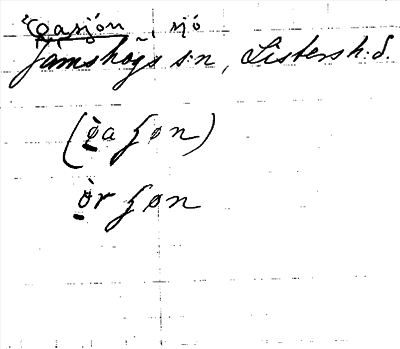 Oasjön, sjö
Jämshögs s:n, Listers h:d.
(òa ʃøn)
òr ʃøn